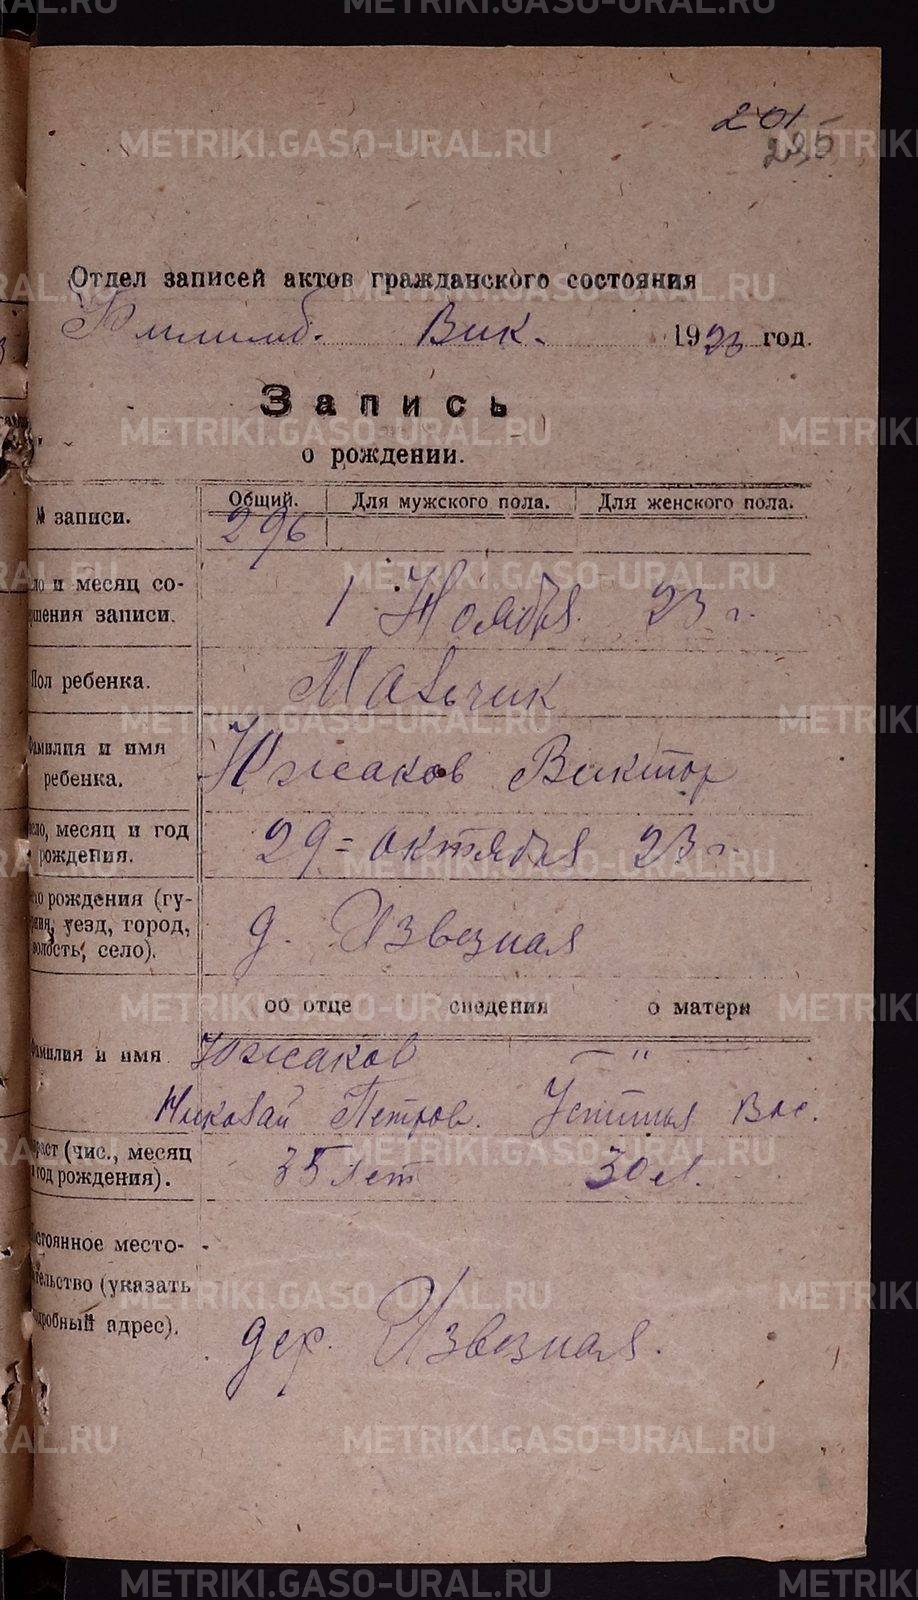 201
235
Отдел записей актов гражданского состояния
Вик. 1923 год.
Запись
о рождении.
№ записи. Общий. Для мужского пола. Для женского пола.
296
ло и месяц со-
шения записи. 1 Ноября 23 г.
Пол ребенка. Мальчик
амилия и имя
ребенка. Южаков Виктор
ло, месяц и год
рождения. 29 = октября 23 г.
о рождения (гу-
ния, уезд, город,
волость, село). д. Извезная
об отце сведения о матери
амилия и имя Южаков — " —
Николай Петров. Устинья Вас.
раст (чис., месяц
год рождения). 35 лет 30 л.
стоянное место-
тельство (указать
дробный адрес). дер. Извезная.
METRIKI.GASO-URAL.RU